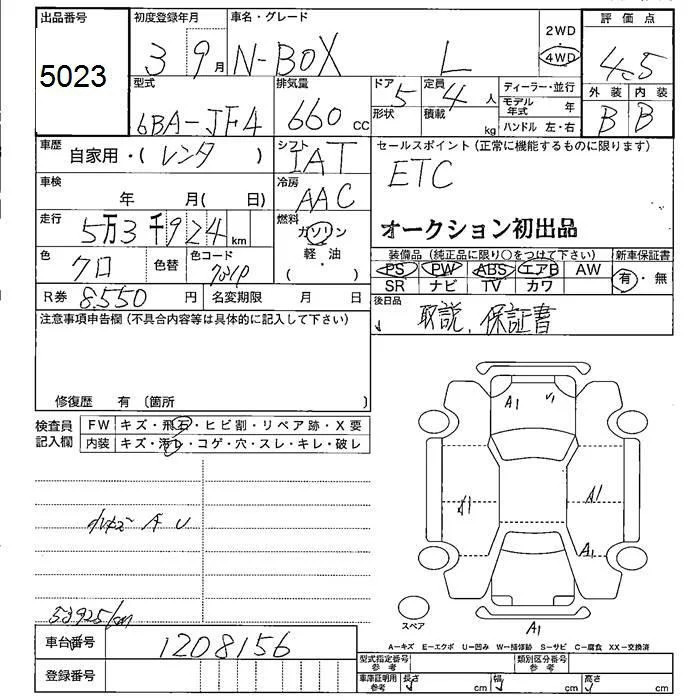 出品番号 初度登録年月 車名・グレード 2WD 評価点
5023 3 9月 N-BOX L 4WD 4.5
型式 排気量 ドア 定員 ディーラー・並行 外装 内装
6BA-JF4 660cc 5 4人 モデル年式 年 B B
形状 積載 kg ハンドル 左・右
車歴 自家用・( レンタ ) シフト IAT セールスポイント(正常に機能するものに限ります)
車検 年 月( 日) 冷房 AAC ETC
走行 5万3千924km 燃料 ガソリン オークション初出品
軽・油
・( )
色 クロ 色替 色コード 装備品(純正品に限り○をつけて下さい) 新車保証書
PS PW ABS エアB AW 有・無
SR ナビ TV カワ
R券 8,550円 名変期限 月 日 後日品
注意事項申告欄(不具合内容等は具体的に記入して下さい) 取説、保証書
修復歴 有〔箇所 〕
検査員記入欄 FW キズ・飛石・ヒビ割・リペア跡・X要
内装 キズ・汚レ・コゲ・穴・スレ・キレ・破レ
A1 V1
A1 A1
A U
A1
53925km
スペア
A1
車台番号 1208156
A-キズ E-エクボ U-凹み W-補修跡 S-サビ C-腐食 XX-交換済
型式指定番号 参考 類別区分番号 参考
登録番号 車庫証明用 参考 長さ cm 幅 cm 高さ cm